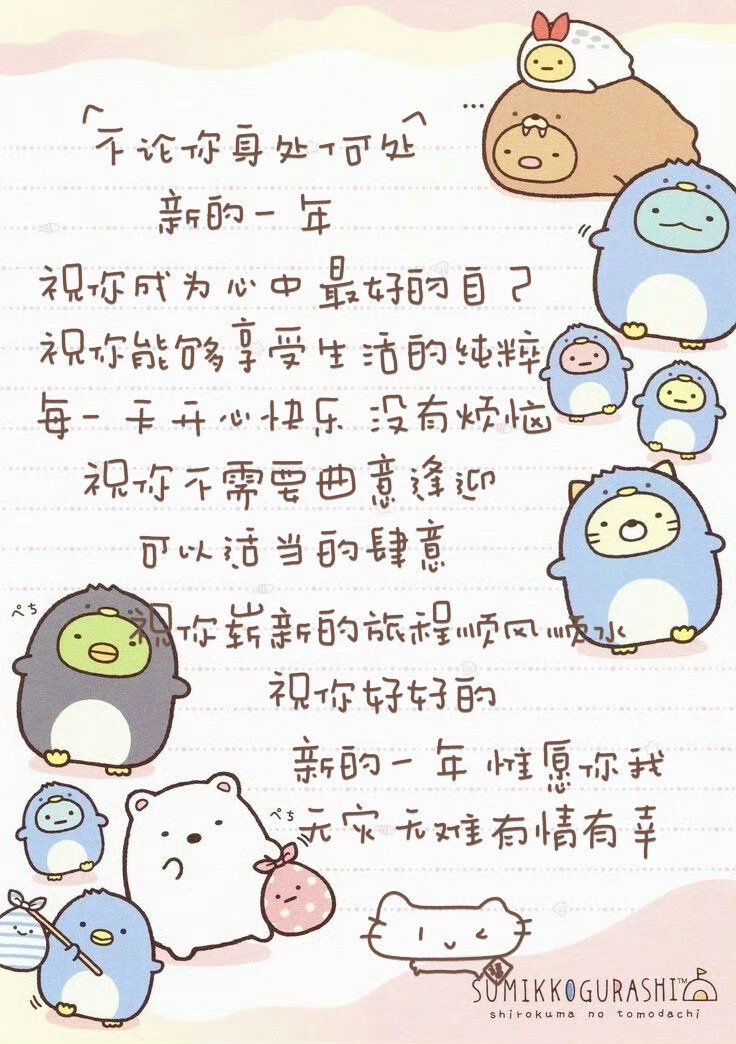 不论你身处何处
新的一年
祝你成为心中最好的自己
祝你能够享受生活的纯粹
每一天开心快乐 没有烦恼
祝你不需要曲意逢迎
可以活当的肆意
ぺち
祝你崭新的旅程顺风顺水
祝你好好的
新的一年 惟愿你我
ぺち
无灾无难有情有幸
福
SUMIKKOGURASHI™
shirokuma no tomodachi